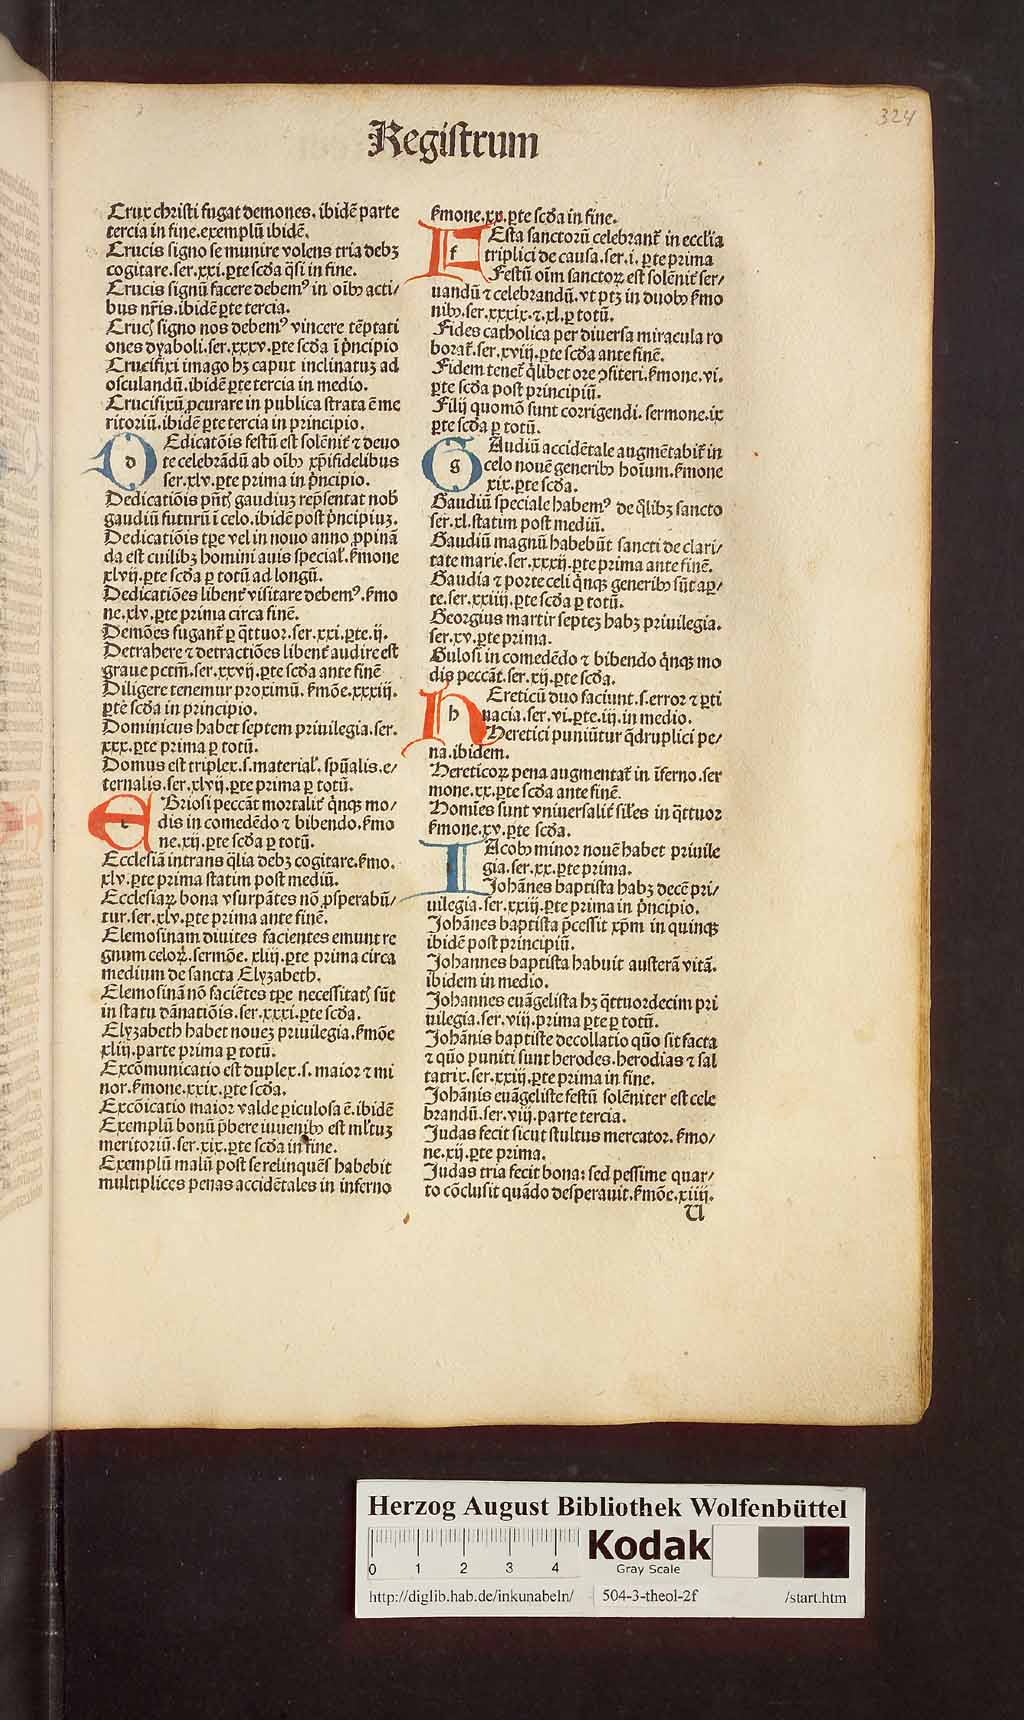 324
Registrum
Crux christi fugat demones. ibidē parte
tercia in fine. exemplū ibidē.
Crucis signo se munire volens tria debꝫ
cogitare. ser. xxi. ꝑte scd̄a q̄si in fine.
Crucis signū facere debemꝰ in oībꝫ acti/
bus nr̄is. ibidē ꝑte tercia.
Crucꝭ signo nos debemꝰ vincere tēptati
ones dyaboli. ser. xxxv. ꝑte scd̄a ī pͥncipio
Crucifixi imago hꝫ caput inclinatuꝫ ad
osculandū. ibidē ꝑte tercia in medio.
Crucifixū ꝓcurare in publica strata ē me
ritoriū. ibidē ꝑte tercia in principio.
D d Edicatōis festū est solēnit̄ ⁊ deuo
te celebrādū ab oībꝫ xp̄ifidelibus
ser. xlv. ꝑte prima in pͥncipio.
Dedicatiōis pn̄tꝭ gaudiuꝫ rep̄sentat nob̄
gaudiū futurū ī celo. ibidē post pͥncipiuꝫ.
Dedicatiōis tꝑe vel in nouo anno ꝓpinā
da est cuilibꝫ homini auis special̄. ẜmone
xlvij. ꝑte scd̄a ꝑ totū ad longū.
Dedicatiōes libent̄ visitare debemꝰ. ẜmo
ne. xlv. ꝑte prima circa finē.
Demōes fugant̄ ꝑ q̄ttuor. ser. xxi. ꝑte. ij.
Detrahere ⁊ detractiōes libent̄ audire est
graue pctm̄. ser. xxvij. ꝑte scd̄a ante finē
Diligere tenemur proximū. ẜmōe. xxxiij.
ꝑte scd̄a in principio.
Dominicus habet septem priuilegia. ser.
xxx. ꝑte prima ꝑ totū.
Domus est triplex. s. material̄. spūalis. e/
ternalis. ser. xlvij. ꝑte prima ꝑ totū.
E e Briosi peccāt mortalit̄ qͥnqꝫ mo/
dis in comedēdo ⁊ bibendo. ẜmo
ne. xij. ꝑte scd̄a ꝑ totū.
Ecclesiā intrans q̄lia debꝫ cogitare. ẜmo.
xlv. ꝑte prima statim post mediū.
Ecclesiaꝝ bona vsurpātes nō ꝓsperabū/
tur. ser. xlv. ꝑte prima ante finē.
Elemosinam diuites facientes emunt re
gnum celoꝝ. sermōe. xliij. ꝑte prima circa
medium de sancta Elyzabeth.
Elemosinā nō faciētes tꝑe necessitatꝭ sūt
in statu dānatiōis. ser. xxxi. ꝑte scd̄a.
Elyzabeth habet noueꝫ priuilegia. ẜmōe
xliij. parte prima ꝑ totū.
Excōmunicatio est duplex. s. maior ⁊ mi
nor. ẜmone. xxix. ꝑte scd̄a.
Excōicatio maior valde ꝑiculosa ē. ibidē
Exemplū bonū p̄bere iuuenibꝫ est ml̄tuꝫ
meritoriū. ser. xix. ꝑte scd̄a in fine.
Exemplū malū post se relinquēs habebit
multiplices penas accidētales in inferno
ẜmone. xx. ꝑte scd̄a in fine.
F f Esta sanctorū celebrant̄ in eccl̄ia
triplici de causa. ser. i. ꝑte prima
Festū oīm sanctoꝝ est solēnit̄ ser/
uandū ⁊ celebrandū. vt ptꝫ in duobꝫ ẜmo
nibꝫ. ser. xxxix. ⁊. xl. ꝑ totū.
Fides catholica per diuersa miracula ro
borat̄. ser. xviij. ꝑte scd̄a ante finē.
Fidem tenet̄ q̄libet ore ꝯfiteri. ẜmone. vi.
ꝑte scd̄a post principiū.
Filij quomō sunt corrigendi. sermone. ix
ꝑte scd̄a ꝑ totū.
G g Audiū accidētale augmētabit̄ in
celo nouē generibꝫ hoīum. ẜmone
xix. ꝑte scd̄a.
Gaudiū speciale habemꝰ de q̄libꝫ sancto
ser. xl. statim post mediū.
Gaudiū magnū habebūt sancti de clari/
tate marie. ser. xxxij. ꝑte prima ante finē.
Gaudia ⁊ porte celi qͥnqꝫ generibꝫ sūt aꝑ/
te. ser. xxiiij. ꝑte scd̄a ꝑ totū.
Georgius martir septeꝫ habꝫ priuilegia.
ser. xv. ꝑte prima.
Gulosi in comedēdo ⁊ bibendo qͥnqꝫ mo
dis peccāt. ser. xij. ꝑte scd̄a.
H h Ereticū duo faciunt. s. error ⁊ ꝑti
nacia. ser. vi. ꝑte. iij. in medio.
Heretici puniūtur q̄druplici pe/
na. ibidem.
Hereticoꝝ pena augmentat̄ in īferno. ser
mone. xx. ꝑte scd̄a ante finē.
Homīes sunt vniuersalit̄ sil̄es in q̄ttuor
ẜmone. xv. ꝑte scd̄a.
I Acobꝫ minor nouē habet priuile
gia. ser. xx. ꝑte prima.
Johānes baptista habꝫ decē pri/
uilegia. ser. xxiij. ꝑte prima in pͥncipio.
Johānes baptista p̄cessit xp̄m in quinqꝫ
ibidē post principiū.
Johannes baptista habuit austerā vitā.
ibidem in medio.
Johannes euāgelista hꝫ q̄ttuordecim pri
uilegia. ser. viij. prima ꝑte ꝑ totū.
Johānis baptiste decollatio quō sit facta
⁊ quō puniti sunt herodes. herodias ⁊ sal
tatrix. ser. xxiij. ꝑte prima in fine.
Johānis euāgeliste festū solēniter est cele
brandū. ser. viij. parte tercia.
Judas fecit sicut stultus mercator. ẜmo/
ne. xij. ꝑte prima.
Judas tria fecit bona: sed pessime quar/
to cōclusit quādo desperauit. ẜmōe. xiiij.
U
Herzog August Bibliothek Wolfenbüttel
0 1 2 3 4
Kodak
Gray Scale
http://diglib.hab.de/inkunabeln/ 504-3-theol-2f /start.htm